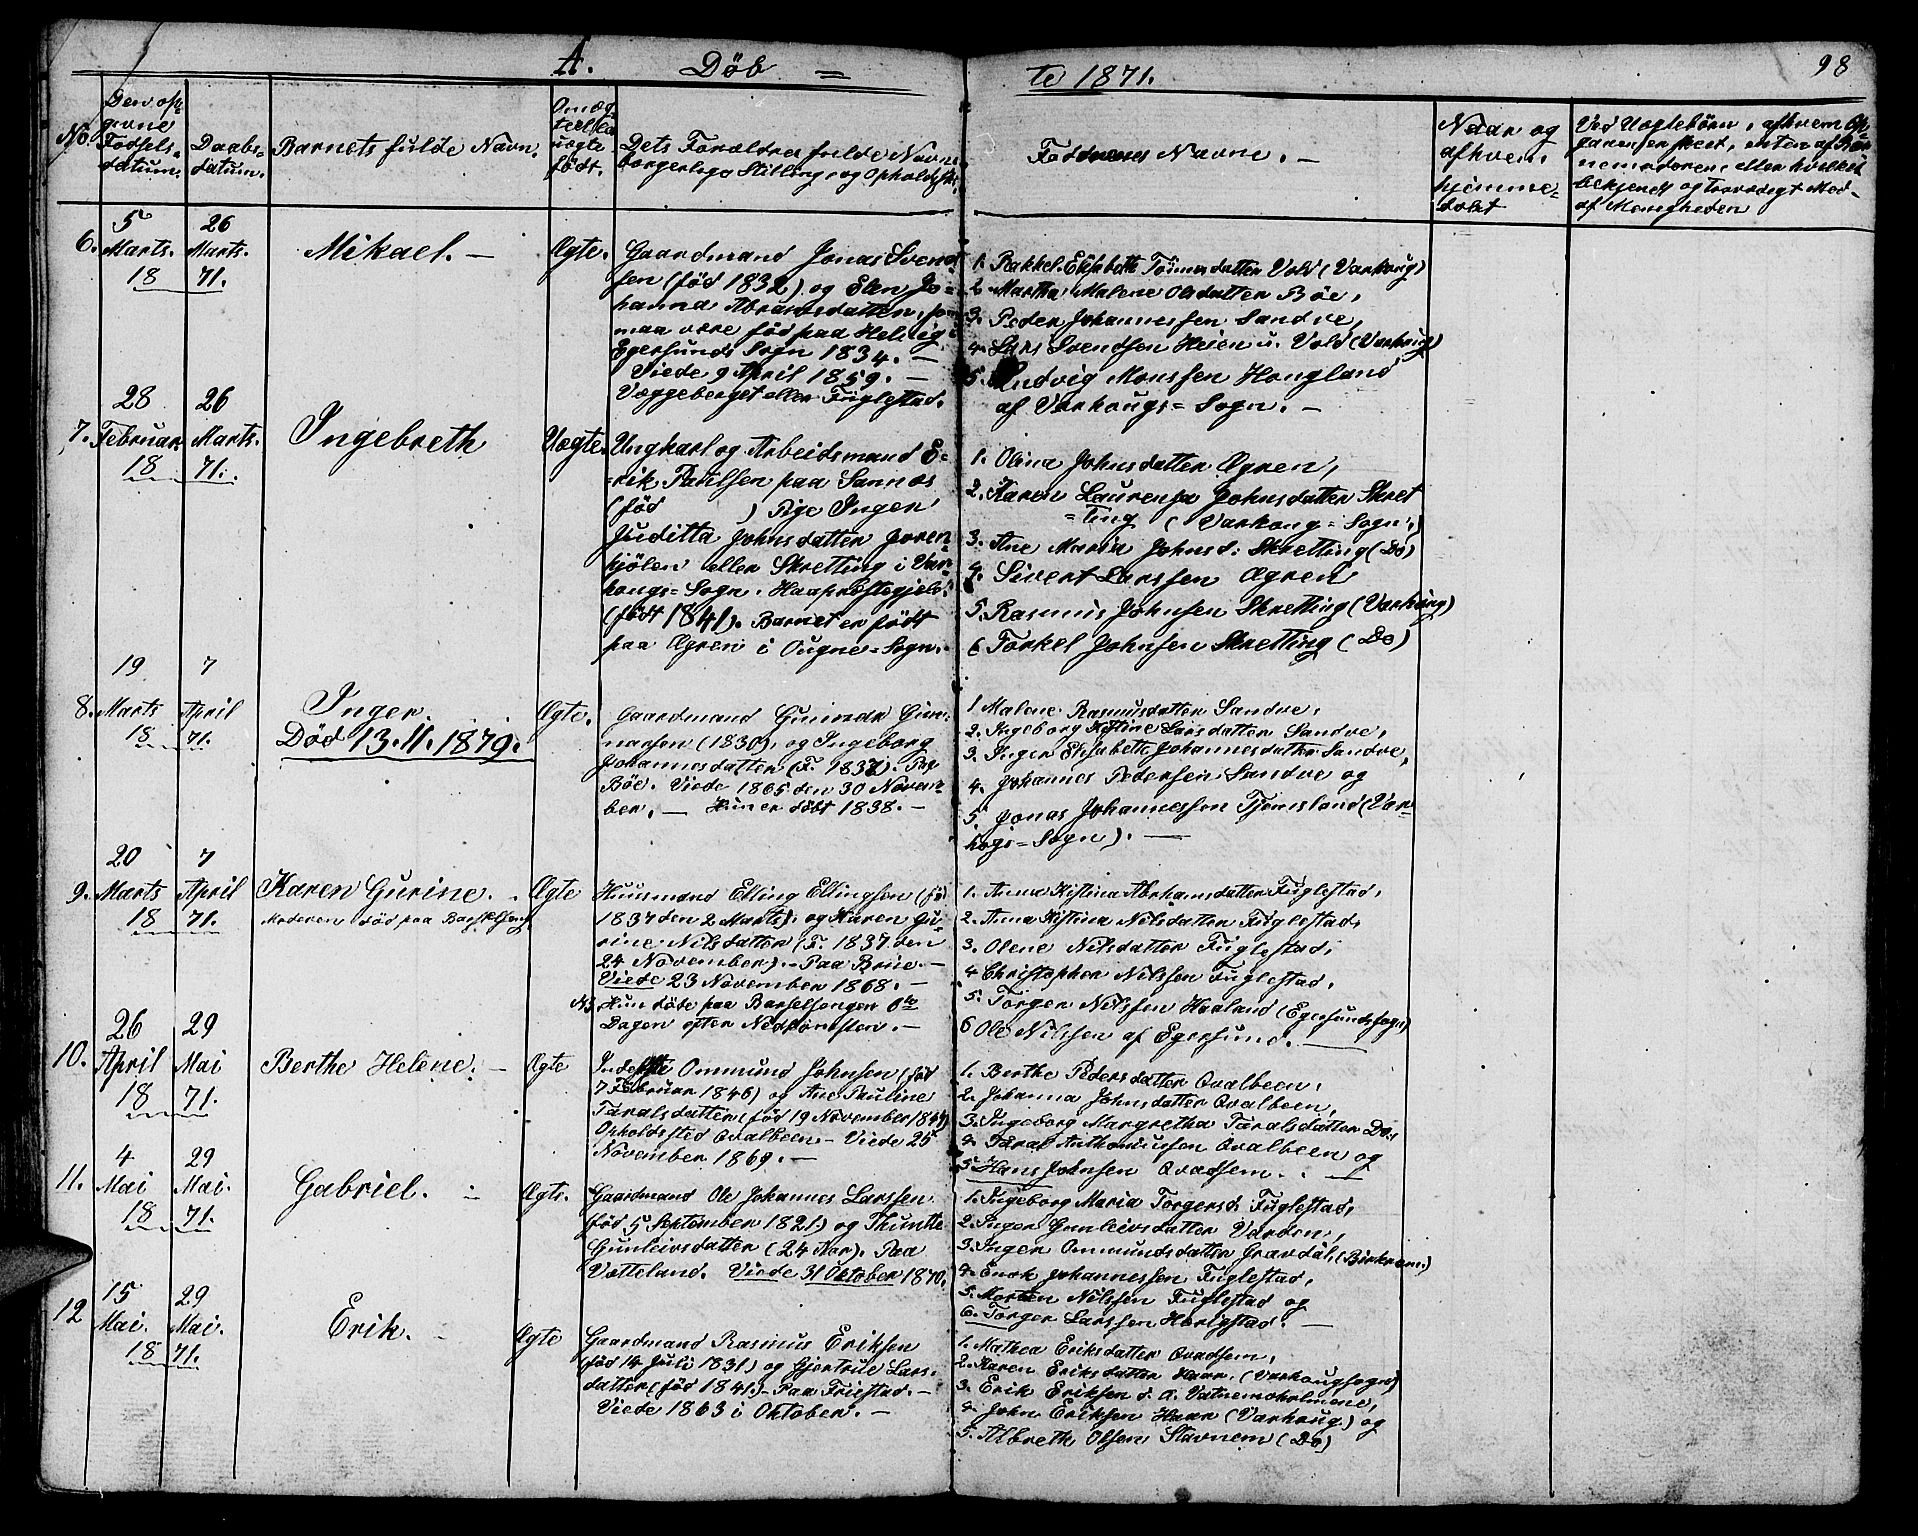 A. Døb = te 1871. 98
No.
Den op-
givne
Fødsels-
datum.
Daabs-
datum.
Barnets fulde Navn.
født.
Dets Forældres fulde Navne
borgerlege Stilling, og
Faddrenes Navne. —
Naar og
af hvem
hjemme-
døbt
Ved Uægtebörn, af hvem
skeet, enten af
eller hvilket
bekjendt og troværdigt
af Menigheden
6. 5 Marts. 18 26 Marts. 71.
Mikael. —
Ægte.
Gaardmand Jonas Svend-
sen (fød 1832) og Elen Jo-
hanna Abramsdatter,
maa være fød paa Helvig i
Egersunds Sogn 1834. —
Viede 9 April 1859. —
Væggeberget eller Fuglestad.
1. Rakkel Elisabeth Tönnesdatter Vold (Varhoug)
2 Martha Malene Olsdatter Böe,
3. Peder Johannessen Sandve,
4. Lars Svendsen Heien u. Vold (Varhoug)
5. Ludvig Monssen Hougland
af Varhougs=Sogn. —
7. 28 Februar 18 26 Marts. 71.
Ingebreth
Uægte.
Ungkarl og Arbeidsmand E-
rik Paulsen paa Sannes
(fød ) Pige Inger
Juditta Johnsdatter
hjölen eller Skretting i Var-
hougs=Sogn. Haa
(født 1841). Barnet er født
paa Ægren i Ougne=Sogn.
1. Olina Johnsdatter Ægren,
2. Karen Laurensa Johnsdatter Skret
=ting (Varhoug=Sogn.)
3. Ane Maria Johnsd: Skretting (Do)
4. Sivert Larssen Ægren
5. Rasmus Johnsen Skretting (Varhoug)
6 Torkel Johnsen Skretting (Do)
8. 19 Marts 18 7 April 71.
Inger
Død 13.11.1879.
Ægte.
Gaardmand Gunnar Gun-
narsen (1830), og Ingeborg
Johannesdatter (F. 1837). Paa
Böe. Viede 1865 den 30 Novem-
ber. — Hun er døbt 1838. —
1. Malene Rasmusdatter Sandve,
2. Ingeborg Kistine Larsdatter Sandve,
3. Inger Elisabeth Johannesdatter Sandve,
4. Johannes Pedersen Sandve og
5. Jonas Johannessen Tjemsland (Var-
hogs=Sogn). —
9. 20 Marts 18 7 April 71.
Karen Gurine.
Moderen død paa Barselseng
Ægte
Huusmand Elling Ellingsen (fø:
1837 den 2 Marts). og Karen Gu-
rine Nilsdatter (F. 1837. den
24 November). Paa Brue. —
Viede 23 November 1868. —
NB. Hun døde paa Barselsengen 6te
Dagen efter Nedkomsten. —
1. Anna Kistina Abrhamsdatter Fuglestad,
2. Anna Kistina Nilsdatter Fuglestad,
3. Olene Nilsdatter Fuglestad,
4 Christopher Nilssen Fuglestad,
5. Torger Nilssen Haaland (Egersundssogn)
6 Ole Nilssen af Egersund. —
10. 26 April 18 29 Mai 71.
Berthe Helene. —
Ægte
Ommund Johnsen (fød
7 Februar 1846) og Ane Pauline
Taralsdatter (fød 19 November 1844)
Opholdssted Qvalbeen. — Viede 25
November 1869. —
1. Berthe Pedersdatter Qvalbeen,
2. Johanna Johnsdatter Qvalbeen,
3. Ingeborg Margretha Taralsdatter Do.,
4. Taral Anthoniussen Qvalbeen og
5 Hans Johnsen Qvadsem. —
11. 4 Mai 18 29 Mai. 71.
Gabriel. —
Ægte.
Gaardmand Ole Johannes Larssen
(fød 5 September 1821) og Thunte
Gunleivsdatter (24 Aar). Paa
Vætteland. Viede 31 Oktober 1870.
1. Ingeborg Maria Torgersd. Fuglestad,
2. Inger Gunleivsdatter Varden,
3. Inger Ommundsdatter Gravdal, (Birkrem)
4. Enok Johannessen Fuglestad,
5. Morten Nilssen Fuglestad og
6. Torger Larssen Herigstad. —
12 15 Mai. 18 29 Mai. 71.
Erik. —
Ægte
Gaardmand Rasmus Eriksen
(fød 14 Juli 1831) og Gjertrue Lars-
datter (fød 1841. — Paa Friestad. —
Viede 1863 i Oktober. —
1. Mathea Eriksdatter Qvadsem,
2. Karen Eriksdatter Haar, (Varhougsogn)
3. Erik Eriksen d. a. Vatnemoholmene,
4. John Eriksen Haar (Varhoug) og
5. Albreth Olsen Stavnem (Do)